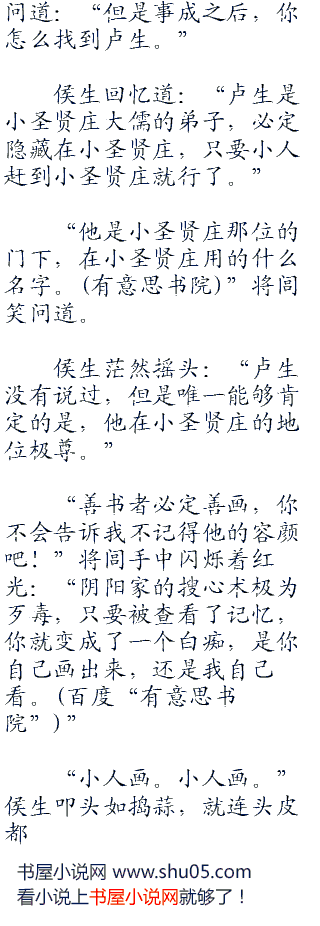 问道：“但是事成之后，你
怎么找到卢生。”
侯生回忆道：“卢生是
小圣贤庄大儒的弟子，必定
隐藏在小圣贤庄，只要小人
赶到小圣贤庄就行了。”
“他是小圣贤庄那位的
门下，在小圣贤庄用的什么
名字。(有意思书院)”将闾
笑问道。
侯生茫然摇头：“卢生
没有说过，但是唯一能够肯
定的是，他在小圣贤庄的地
位极尊。”
“善书者必定善画，你
不会告诉我不记得他的容颜
吧！”将闾手中闪烁着红
光：“阴阳家的搜心术极为
歹毒，只要被查看了记忆，
你就变成了一个白痴，是你
自己画出来，还是我自己
看。(百度“有意思书
院”)”
“小人画。小人画。”
侯生叩头如捣蒜，就连头皮
都
书屋小说网 www.shu05.com
看小说上书屋小说网就够了！